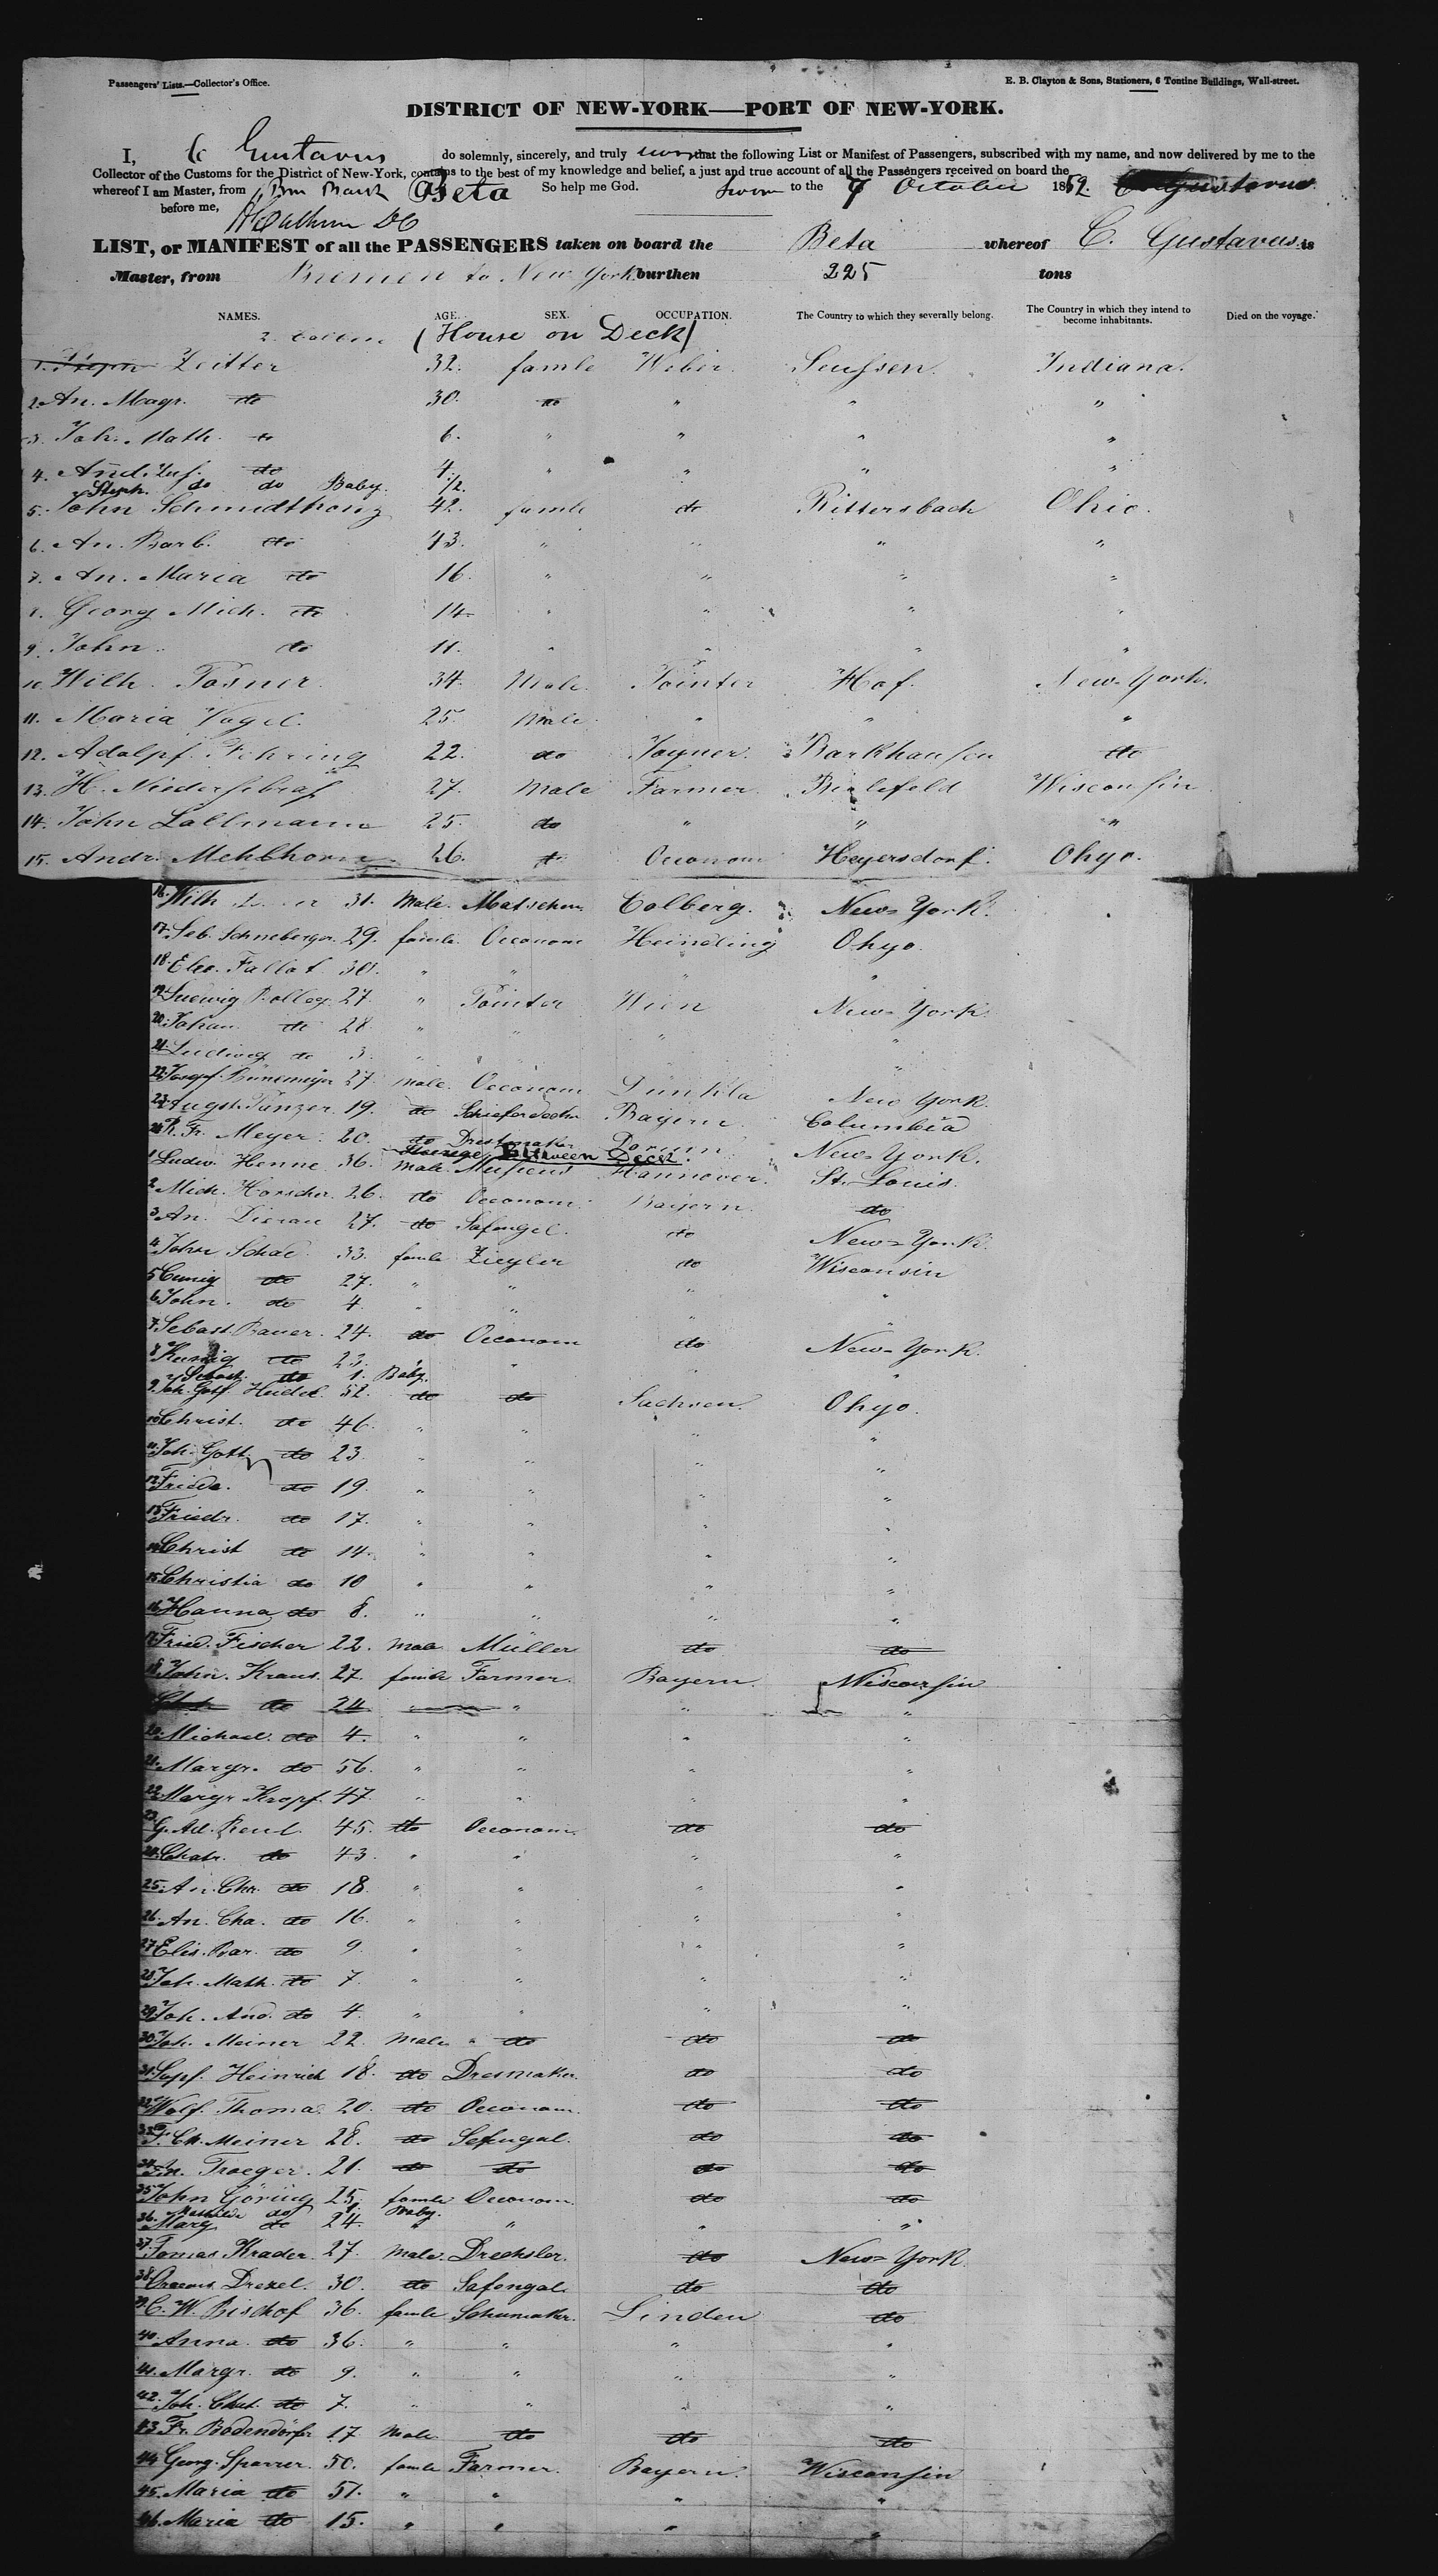 Passengers' Lists.—Collector's Office.
E. B. Clayton & Sons, Stationers, 6 Tontine Buildings, Wall-street.
DISTRICT OF NEW-YORK—PORT OF NEW-YORK.
I, C Gustavus do solemnly, sincerely, and truly swear that the following List or Manifest of Passengers, subscribed with my name, and now delivered by me to the
Collector of the Customs for the District of New-York, contains to the best of my knowledge and belief, a just and true account of all the Passengers received on board the
whereof I am Master, from Brm Bark Beta So help me God. Sworn to the 7 October 1852 C. Gustavus
before me,
LIST, or MANIFEST of all the PASSENGERS taken on board the Beta whereof C. Gustavus is
Master, from Bremen to New York burthen 225 tons
NAMES. AGE. SEX. OCCUPATION. The Country to which they severally belong. The Country in which they intend to become inhabitants. Died on the voyage.
(House on Deck)
1. Zeitler 32. famle Weber. Seussen. Indiana.
2. An. Magr. do 30. do " " "
3. Joh. Math. do 6. " " " "
4. And. do 4. " " " "
Steph. do do Baby. 1/2.
5. John Schmidthonz 42. famle do Rittersbach Ohio.
6. An. Barb. do 43. " " " "
7. An. Maria do 16. " " " "
8. Georg Mich. do 14. " " " "
9. John. do 11. " " " "
10. Wilh. Posner. 34. Male. Pointer Hof. New-York.
11. Maria Vogel. 25. Male. " " "
12. Adalpf. Fehring 22. do Joyner. Barkhausen do
13. H. 27. Male Farmer. Bielefeld Wisconsin
14. John Lallmann 25. do " " "
15. Andr. Mehlhorn 26. do Oeconom Heyersdorf. Ohyo.
16. Wilh. 31. Male. Matschen Colberg. New-York.
17. Seb. Schneberger. 29. famle. Oeconom Heindling Ohyo.
18. Eleo. Fallot. 30. " " " "
19. Ludwig 27. " Pointer Wien New-York.
20. Johan do 28. " " " "
21. Ludwig do 3. " " "
22. Josepf. Bünemeyer 27. Male. Oeconom New York.
23. Augst. Panzer. 19. do Schieferdecker Bayern. Columbia
24. R. Fr. Meyer. 20. do Dressmaker New-York.
Between Deck.
1. Ludw. Henne. 36. Male. Musicus Hannover. St. Louis.
2. Mich. Horscher. 26. do Oeconom. Bayern. do
3. An. 27. do do New-York.
4. John 33. famle Ziegler do Wisconsin
5. Cunig do 27. " " " "
6. John. do 4. " " " "
7. Sebast. Bauer. 24. do Oeconom do New-York.
8. Kunig do 23. " " " "
Sebast. do 1. Baby.
9. Joh. Gotf. 52. do do Sachsen. Ohyo.
10. Christ. do 46. " " " "
11. Joh. Gotth. do 23. " " " "
12. Friede. do 19. " " " "
13. Friedr. do 17. " " " "
14. Christ do 14. " " " "
15. Christia do 10 " " " "
16. Hanna do 8. " " " "
17. Fried. Fischer 22. Male Müller do do
18. John. Kraus. 27. famle Farmer. Bayern. Wisconsin
do 24. " " "
20. Michael. do 4. " " " "
21. Margr. do 56. " " " "
22. Margr Kropf. 47. " " " "
23. G. Ad. 45. do Oeconom. do do
24. Chatr. do 43. " " " "
25. An. Chr. do 18. " " " "
26. An. Cha. do 16. " " " "
27. Elis. Bar. do 9. " " " "
28. Joh. Math. do 7. " " " "
29. Joh. And. do 4. " " " "
30. Joh. Meiner 22. Male " do do do
31. Heinrich 18. do Dresmaker. do do
32. Wolf. Thoma. 20. do Oeconom. do do
33. Ch. Meiner 28. do do do
34. Traeger. 21. do do do do
35. John Göring 25. famle Oeconom. do do
Mathilde do 1. Baby.
36. Marg do 24. " " " "
37. Tomas Krader. 27. Male. Drechsler. do New-York.
38. Drexel. 30. do Safengal. do do
39. C. W. Bischof 36. famle Schumaker. Linden do
40. Anna. do 36. " " " "
41. Margr. do 9. " " " "
42. Joh. Chat. do 7. " " " "
43. Fr. Bodendörfer 17. Male. do do do
44. Georg. Sparrer. 50. famle Farmer. Bayern. Wisconsin
45. Maria do 51. " " " "
46. Maria do 15. " " " "